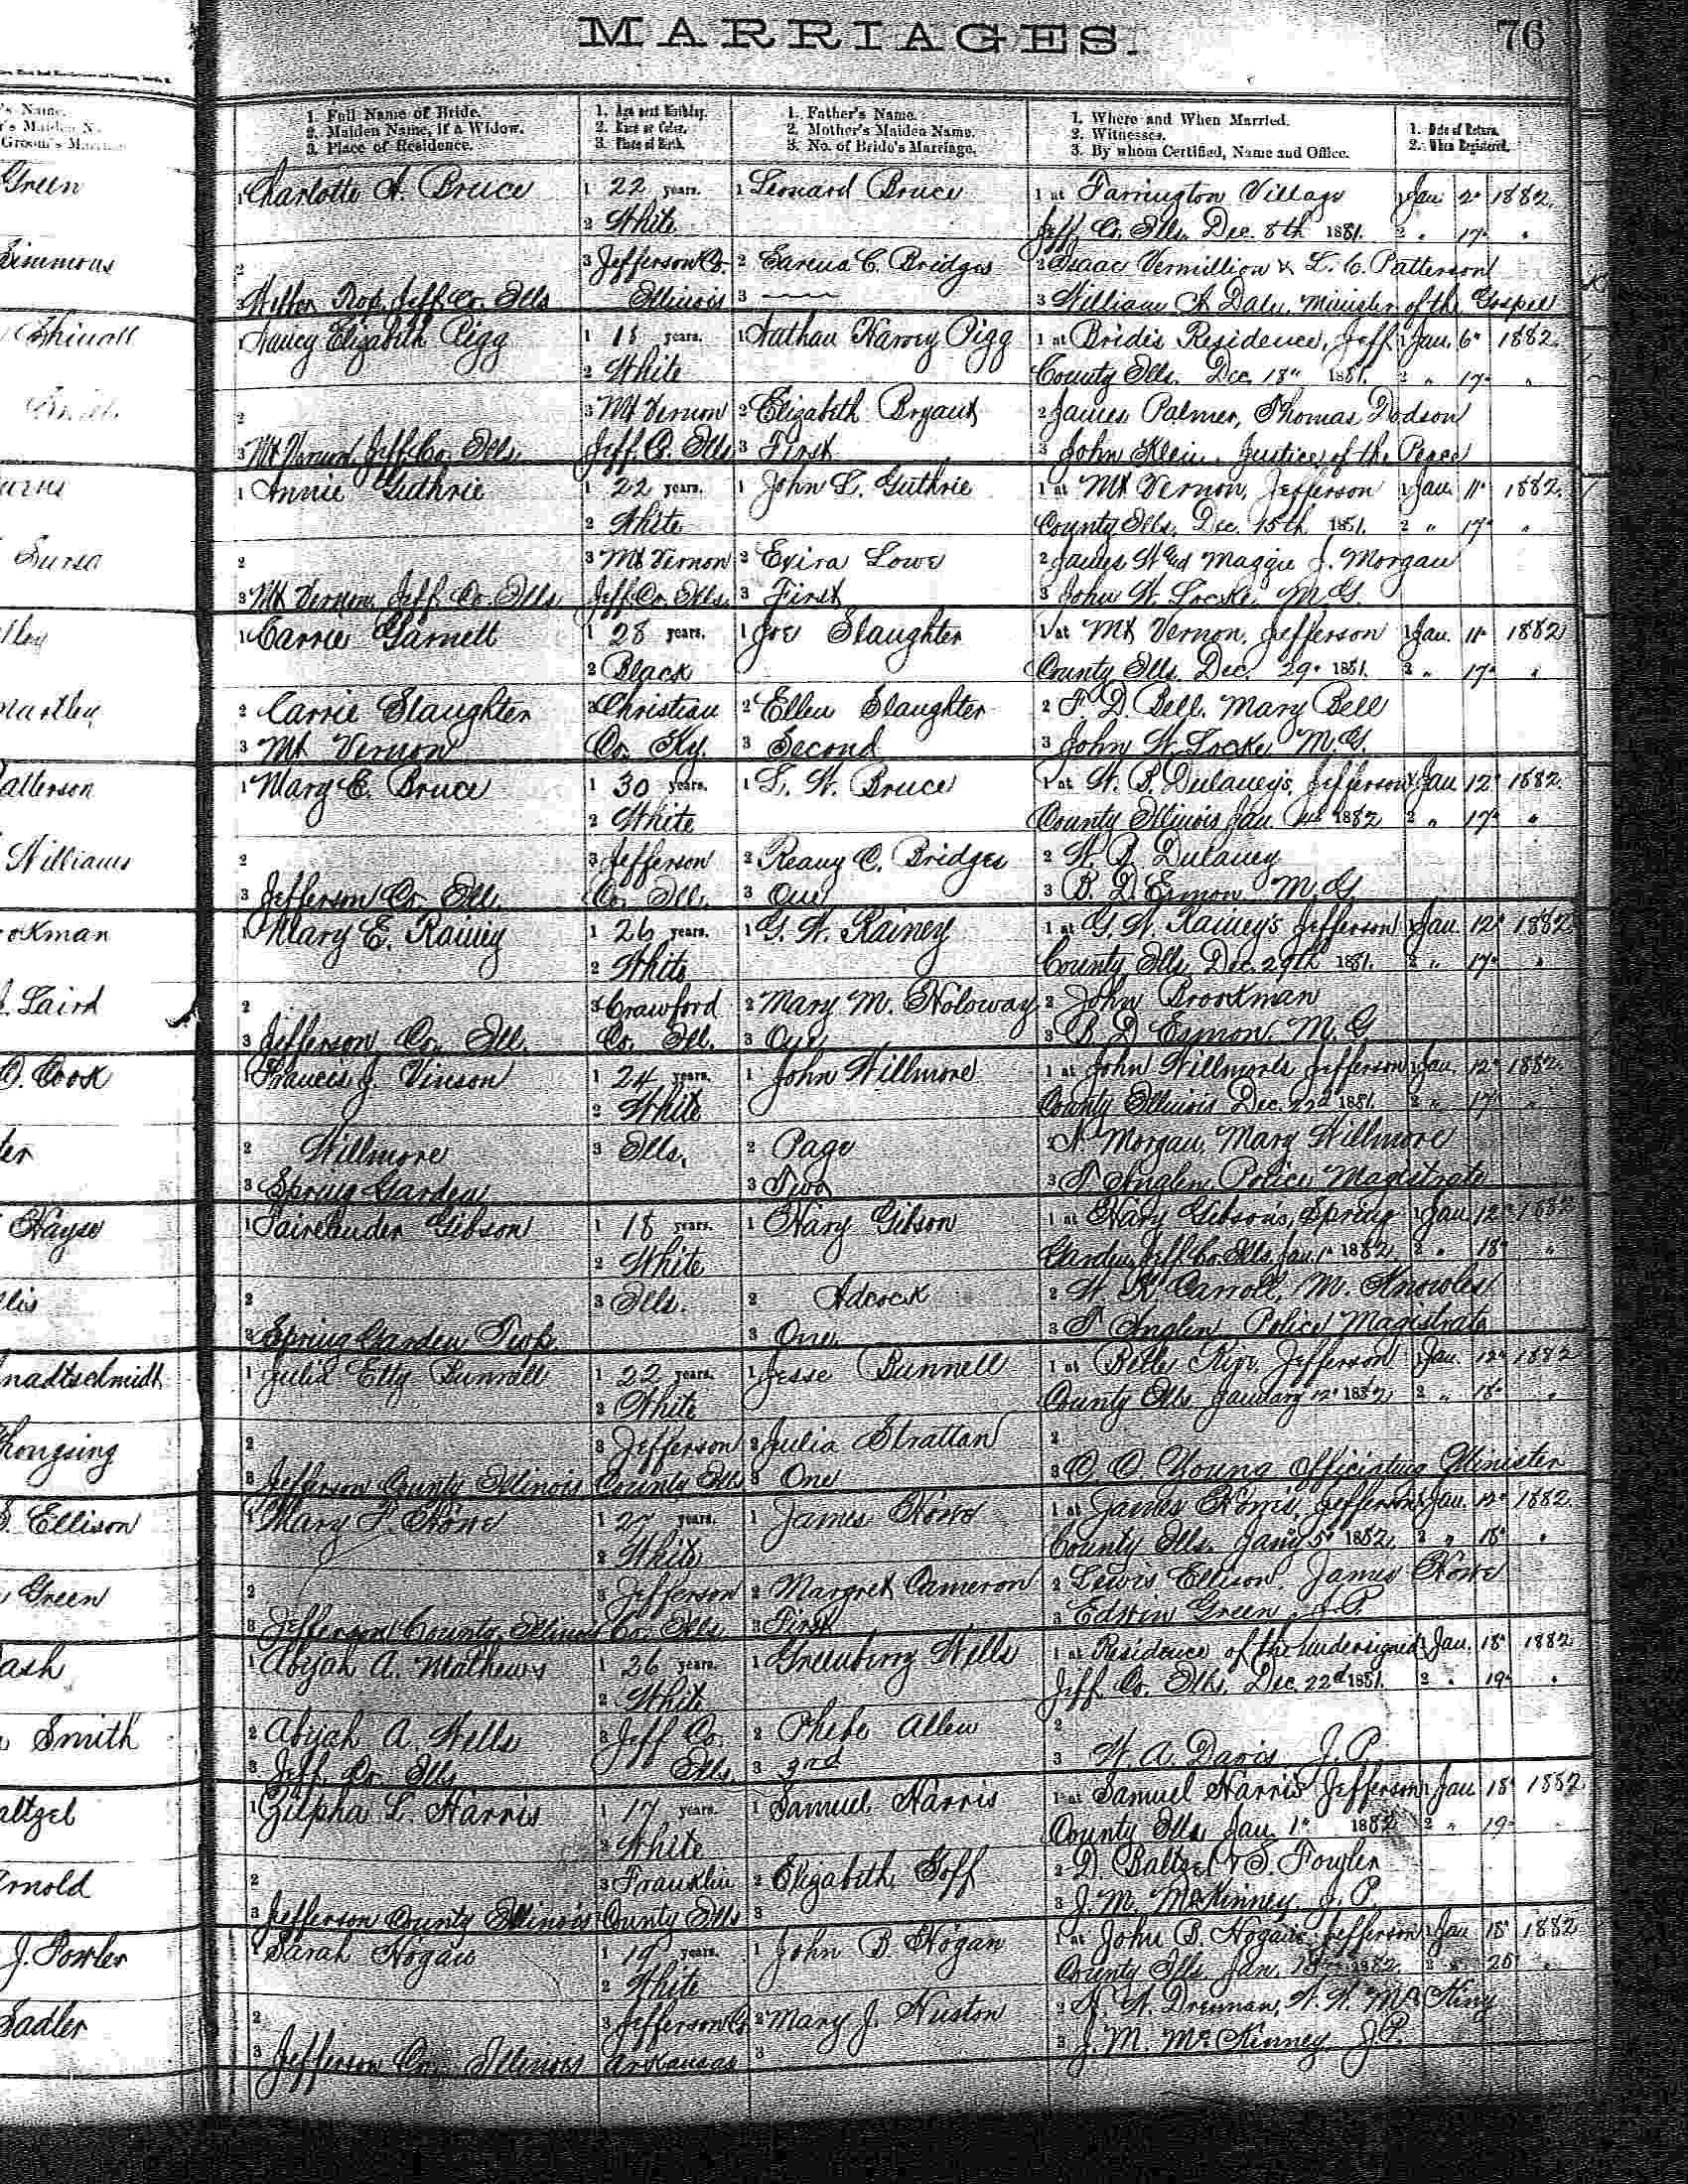 MARRIAGES. 76
's Name.
's Maiden N.
Groom's
1. Full Name of Bride.
2. Maiden Name, if a Widow.
3. Place of Residence.
1. Age next Birthday.
2. Race or Color.
3. Place of Birth.
1. Father's Name.
2. Mother's Maiden Name.
3. No. of Bride's Marriage.
1. Where and When Married.
2. Witnesses.
3. By whom Certified, Name and Office.
1. Date of Return.
2. When Registered.
Green 1 Charlotte A. Bruce 1 22 years. 1 Leonard Bruce 1 at Farrington Village 1 Jan. 2" 1882.
2 White Jeff. Co. Ills. Dec. 8th 1881. 2 " 17" "
Simmons 2 3 Jefferson Co. 2 C. Bridges 2 Isaac Vermillion & L. C. Patterson
3 Jeff. Co. Ills Illinois 3 3 William A Dale, Minister of the Gospel
1 Nancy Elizabeth Pigg 1 18 years. 1 Nathan Harvey Pigg 1 at Brides Residence, Jeff. 1 Jan. 6" 1882.
2 White County Ills. Dec. 18" 1881. 2 " 17" "
2 3 Mt Vernon 2 Elizabeth Bryant 2 James Palmer, Thomas Dodson
3 Mt Vernon, Jeff. Co. Ills. Jeff. Co. Ills 3 First 3 John Klein, Justice of the Peace
1 Annie Guthrie 1 22 years. 1 John L. Guthrie 1 at Mt Vernon, Jefferson 1 Jan. 11" 1882.
2 White County Ills. Dec. 15th 1881. 2 " 17" "
2 3 Mt Vernon 2 Lowe 2 James Maggie J. Morgan
3 Mt Vernon, Jeff. Co. Ills Jeff. Co. Ills. 3 First 3 John W. Locke M.G.
1 Carrie Garnett 1 28 years. 1 Joe Slaughter 1 at Mt Vernon, Jefferson 1 Jan. 11" 1882
2 Black County Ills. Dec. 29" 1881. 2 " 17" "
2 Carrie Slaughter 3 Christian 2 Ellen Slaughter 2 D. Bell. Mary Bell
3 Mt Vernon Co. Ky. 3 Second 3 John W. Locke M.G.
atterson 1 Mary E. Bruce 1 30 years. 1 L. W. Bruce 1 at W. B. Dulaney's, Jefferson 1 Jan 12" 1882.
2 White County Illinois Jan. 1882 2 " 17" "
Williams 2 3 Jefferson 2 C. Bridges 2 W. B. Dulaney
3 Jefferson Co. Ill. Co. Ill. 3 One 3 B. D. Esmon M.G.
ookman 1 Mary E. Rainey 1 26 years. 1 G. W. Rainey 1 at G. W. Rainey's Jefferson 1 Jan. 12" 1882.
2 White County Ills. Dec. 29th 1881. 2 " 17" "
Laird 2 3 Crawford 2 Mary M. Holoway 2 John Brookman
3 Jefferson Co. Ill. Co. Ill. 3 One 3 B. D Esmon. M.G
Cook 1 Francis J. Vinson 1 24 years. 1 John Willmore 1 at John Willmore's Jefferson 1 Jan. 12" 1882.
2 White County Illinois Dec. 22d 1881. 2 " 17" "
2 Willmore 3 Ills. 2 Page 2 Morgan, Mary Willmore
3 Spring Garden 3 Two 3 Anglen Police Magistrate
Hayse 1 Gibson 1 18 years. 1 Hary Gibson 1 at Hary Gibson's, Spring 1 Jan. 12" 1882
2 White Garden, Jeff. Co. Ills. Jan. 1" 1882. 2 " 18" "
2 3 Ills. 2 Adcock 2 Carroll, M. Knowles
3 Spring Garden Twp. 3 One. 3 Anglen Police Magistrate
1 Julia Etty Bunnell 1 22 years. 1 Jesse Bunnell 1 at Belle Rive, Jefferson 1 Jan. 12" 1882
2 White County Ills. January 12" 1882 2 " 18" "
2 3 Jefferson 2 Julia Strattan 2
3 Jefferson County Illinois County Ills 3 One 3 Young Officiating Minister
Ellison 1 Mary Howe 1 27 years. 1 James Howe 1 at James Howe's, Jefferson 1 Jan. 12" 1882.
2 White County Ills. Jany 5" 1882. 2 " 18" "
Green 2 3 Jefferson 2 Margret Cameron 2 Lewis Ellison, James Howe
3 Jefferson County, Illinois Co. Ills. 3 First 3 Edwin Green, J.P.
ash 1 Abijah A. Mathews 1 26 years. 1 Greenburry Wells 1 at Residence of the undersigned 1 Jan. 18" 1882
2 White Jeff. Co. Ills. Dec. 22d 1881. 2 " 19" "
Smith 2 Abijah A. Wells 3 Jeff. Co. 2 Phebe Allen 2
3 Jeff. Co. Ills Ills. 3 3rd 3 W. A. Davis J.P.
altzel 1 Zilpha L. Harris 1 17 years. 1 Samuel Harris 1 at Samuel Harris' Jefferson 1 Jan 18" 1882.
2 White County Ills Jan. 1" 1882 2 " 19" "
Arnold 2 3 Franklin 2 Elizabeth Goff 2 D. Baltzel & S. Fowler
3 Jefferson County Illinois County Ills 3 3 J. M. McKinney J.P.
J. Fowler 1 Sarah Hogan 1 19 years. 1 John B Hogan 1 at John B. Hogan's Jefferson 1 Jan 18" 1882
2 White County Ills Jan. 1882. 2 " 20" "
Sadler 2 3 Jefferson Co. 2 Mary J. Huston 2 Drennan,
3 Jefferson Co. Illinois Arkansas 3 3 J. M. McKinney J.P.